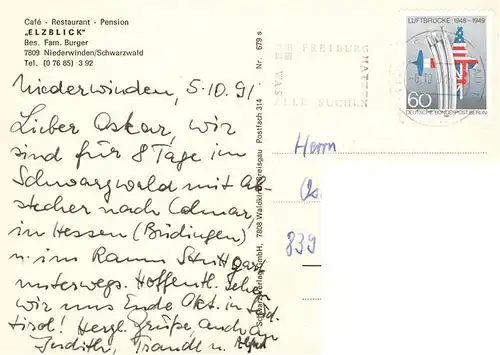 Café - Restaurant - Pension
„ELZBLICK"
Bes. Fam. Burger
7809 Niederwinden/Schwarzwald
Tel. (0 76 85) 3 92
Niederwinden, 5.10.91
Lieber Oskar, wir
sind für 8 Tage im
Schwarzwald mit Ab-
stecher nach Colmar,
in Hessen (Büdingen)
u. im Raum Stuttgart
unterwegs. Hoffentl. sehen
wir uns Ende Okt. in Süd-
tirol! Herzl. Grüße, auch an
Judith, Traudl u.
Schwarz Verlag GmbH. 7808 Waldkirch/Breisgau Postfach 314 Nr. 679 s
FREIBURG
HATTEN
WAS
ALLE SUCHEN
LUFTBRÜCKE 1948-1949
60
DEUTSCHE BUNDESPOST BERLIN
Herrn
839